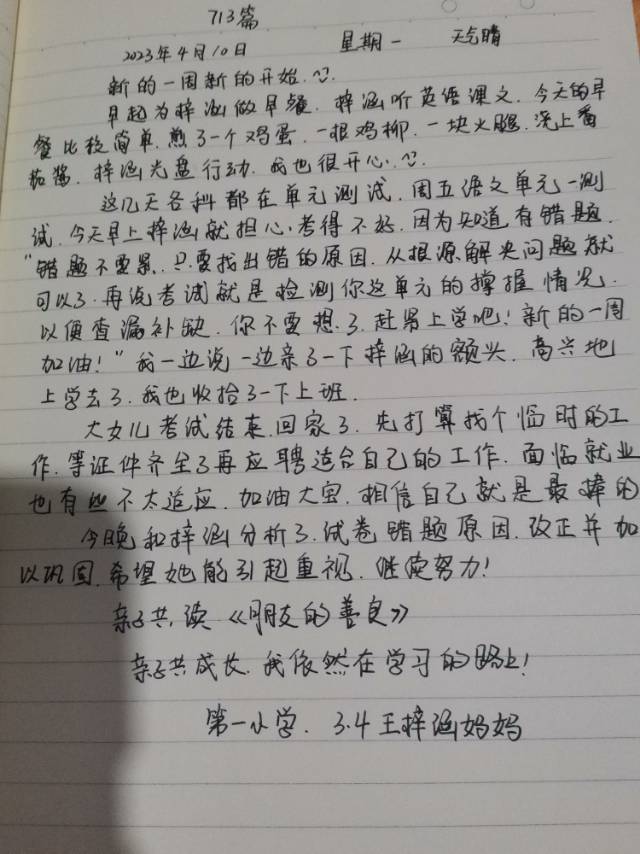 713篇
2023年4月10日 星期一 天气晴
新的一周新的开始.
早起为梓涵做早餐.梓涵听英语课文.今天的早
餐比较简单.煎了一个鸡蛋.一根鸡柳.一块火腿.浇上番
茄酱.梓涵光盘行动.我也很开心.
这几天各科都在单元测试.周五语文单元一测
试.今天早上梓涵就担心.考得不好.因为知道有错题.
"错题不要紧.只要找出错的原因.从根源解决问题就
可以了.再说考试就是检测你这单元的撑握情况.
以便查漏补缺.你不要想了.赶紧上学吧!新的一周
加油!"我一边说一边亲了一下梓涵的额头.高兴地
上学去了.我也收拾了一下上班.
大女儿考试结束.回家了.先打算找个临时的工
作.等证件齐全了再应聘适合自己的工作.面临就业
也有些不太适应.加油大宝.相信自己就是最棒的
今晚和梓涵分析了.试卷错题原因.改正并加
以巩固.希望她能引起重视.继续努力!
亲子共读《朋友的善良》
亲子共成长.我依然在学习的路上!
第一小学.3.4王梓涵妈妈